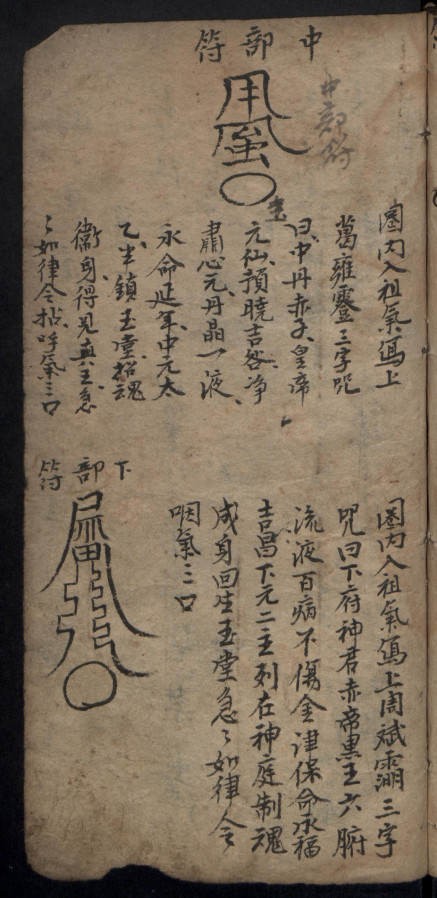 中部符
中部符
圈内入祖氣寫上
葛雍靈三字咒
曰中丹赤子皇帝
元仙預曉吉咎净
肅心元丹晶一液
永命延年中元太
乙坐鎮玉堂招魂
衛身得見真王急
〻如律令拈呼氣三口
下部符
圈内入祖氣寫上周斌三字
咒曰下府神君赤帝黑王六腑
流液百病不傷金津保命永福
吉昌下元二主列在神庭制魂
成身回生玉堂急〻如律令
咽氣三口